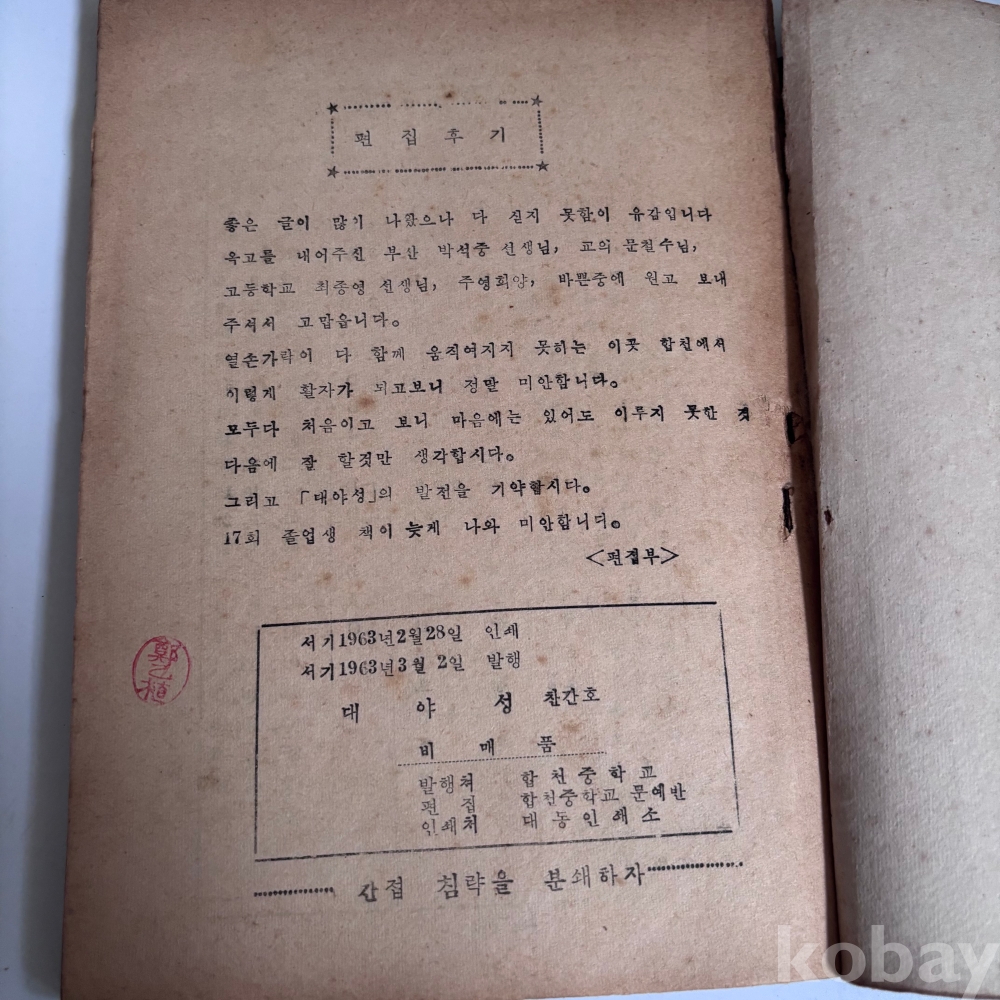 편집후기
좋은 글이 많이 나왔으나 다 싣지 못함이 유감입니다
옥고를 내어주신 부산 박석중 선생님, 교의 문철수님,
고등학교 최종영 선생님, 주영희양, 바쁜중에 원고 보내
주셔서 고맙읍니다.
열손가락이 다 함께 움직여지지 못하는 이곳 합천에서
이렇게 활자가 되고보니 정말 미안합니다.
모두다 처음이고 보니 마음에는 있어도 이루지 못한 것
다음에 잘 할것만 생각합시다.
그리고 「대야성」의 발전을 기약합시다.
17회 졸업생 책이 늦게 나와 미안합니다.
<편접부>
서기1963년2월28일 인쇄
서기1963년3월 2일 발행
대 야 성 찬간호
비 매 품
발행처 합천중학교
편 집 합천중학교 문예반
인쇄처 대동인쇄소
산접 침략을 분쇄하자
鄭乙植
kobay